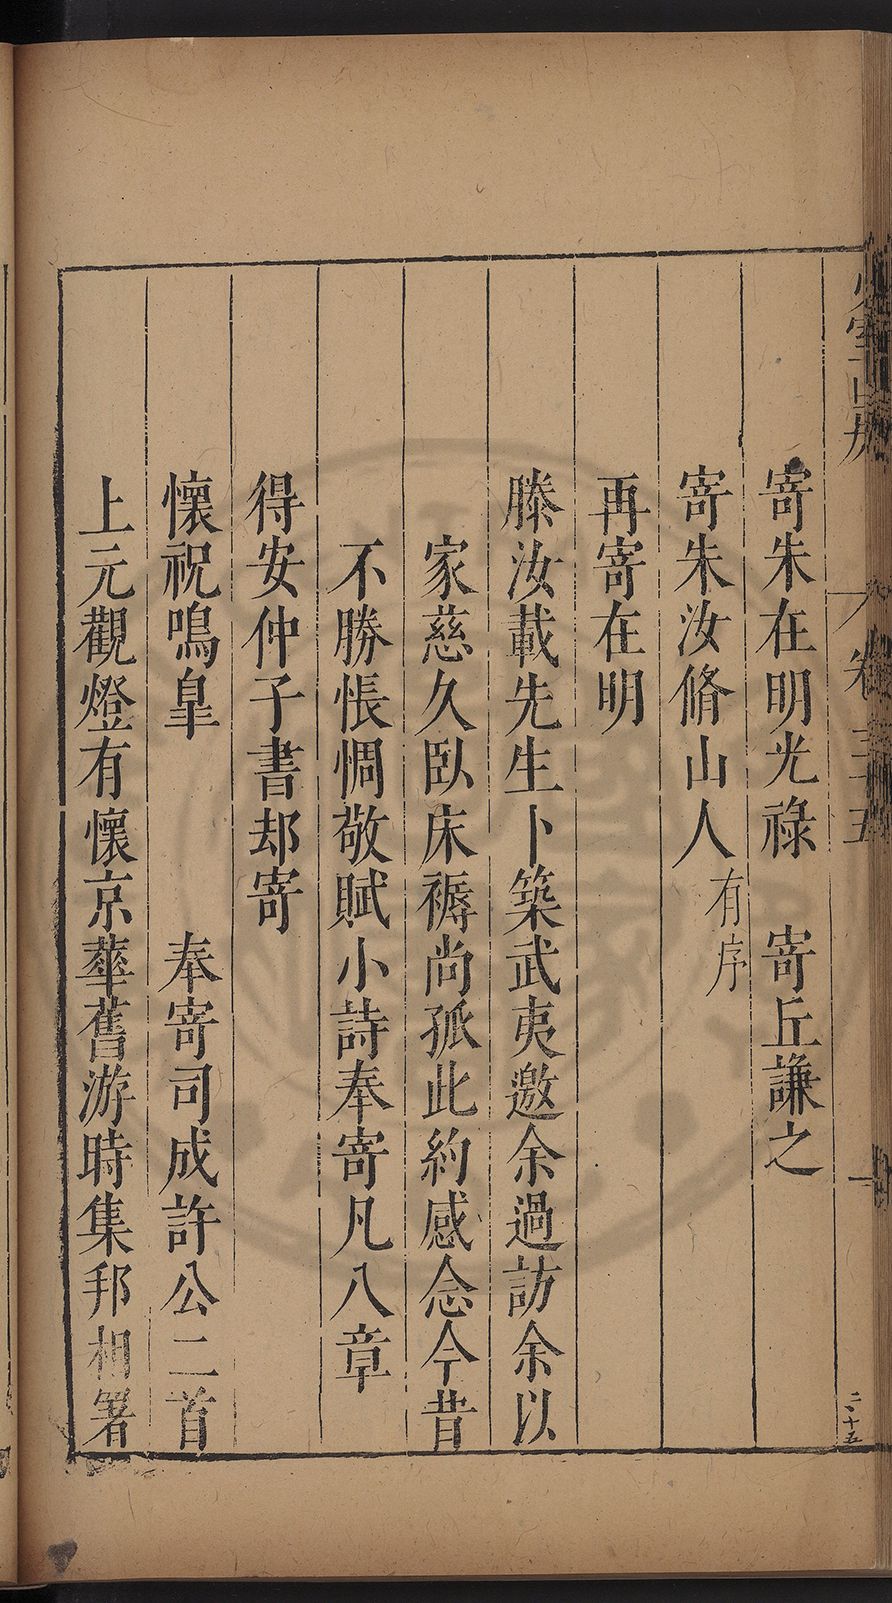 卷三十五
寄朱在明光祿　寄丘謙之
寄朱汝脩山人有序
再寄在明
滕汝載先生卜築武夷邀余過訪余以
家慈久臥床褥尚孤此約感念今昔
不勝悵惆敬賦小詩奉寄凡八章
得安仲子書却寄
懷祝鳴皐　奉寄司成許公二首
上元觀燈有懷京華舊游時集邦相署